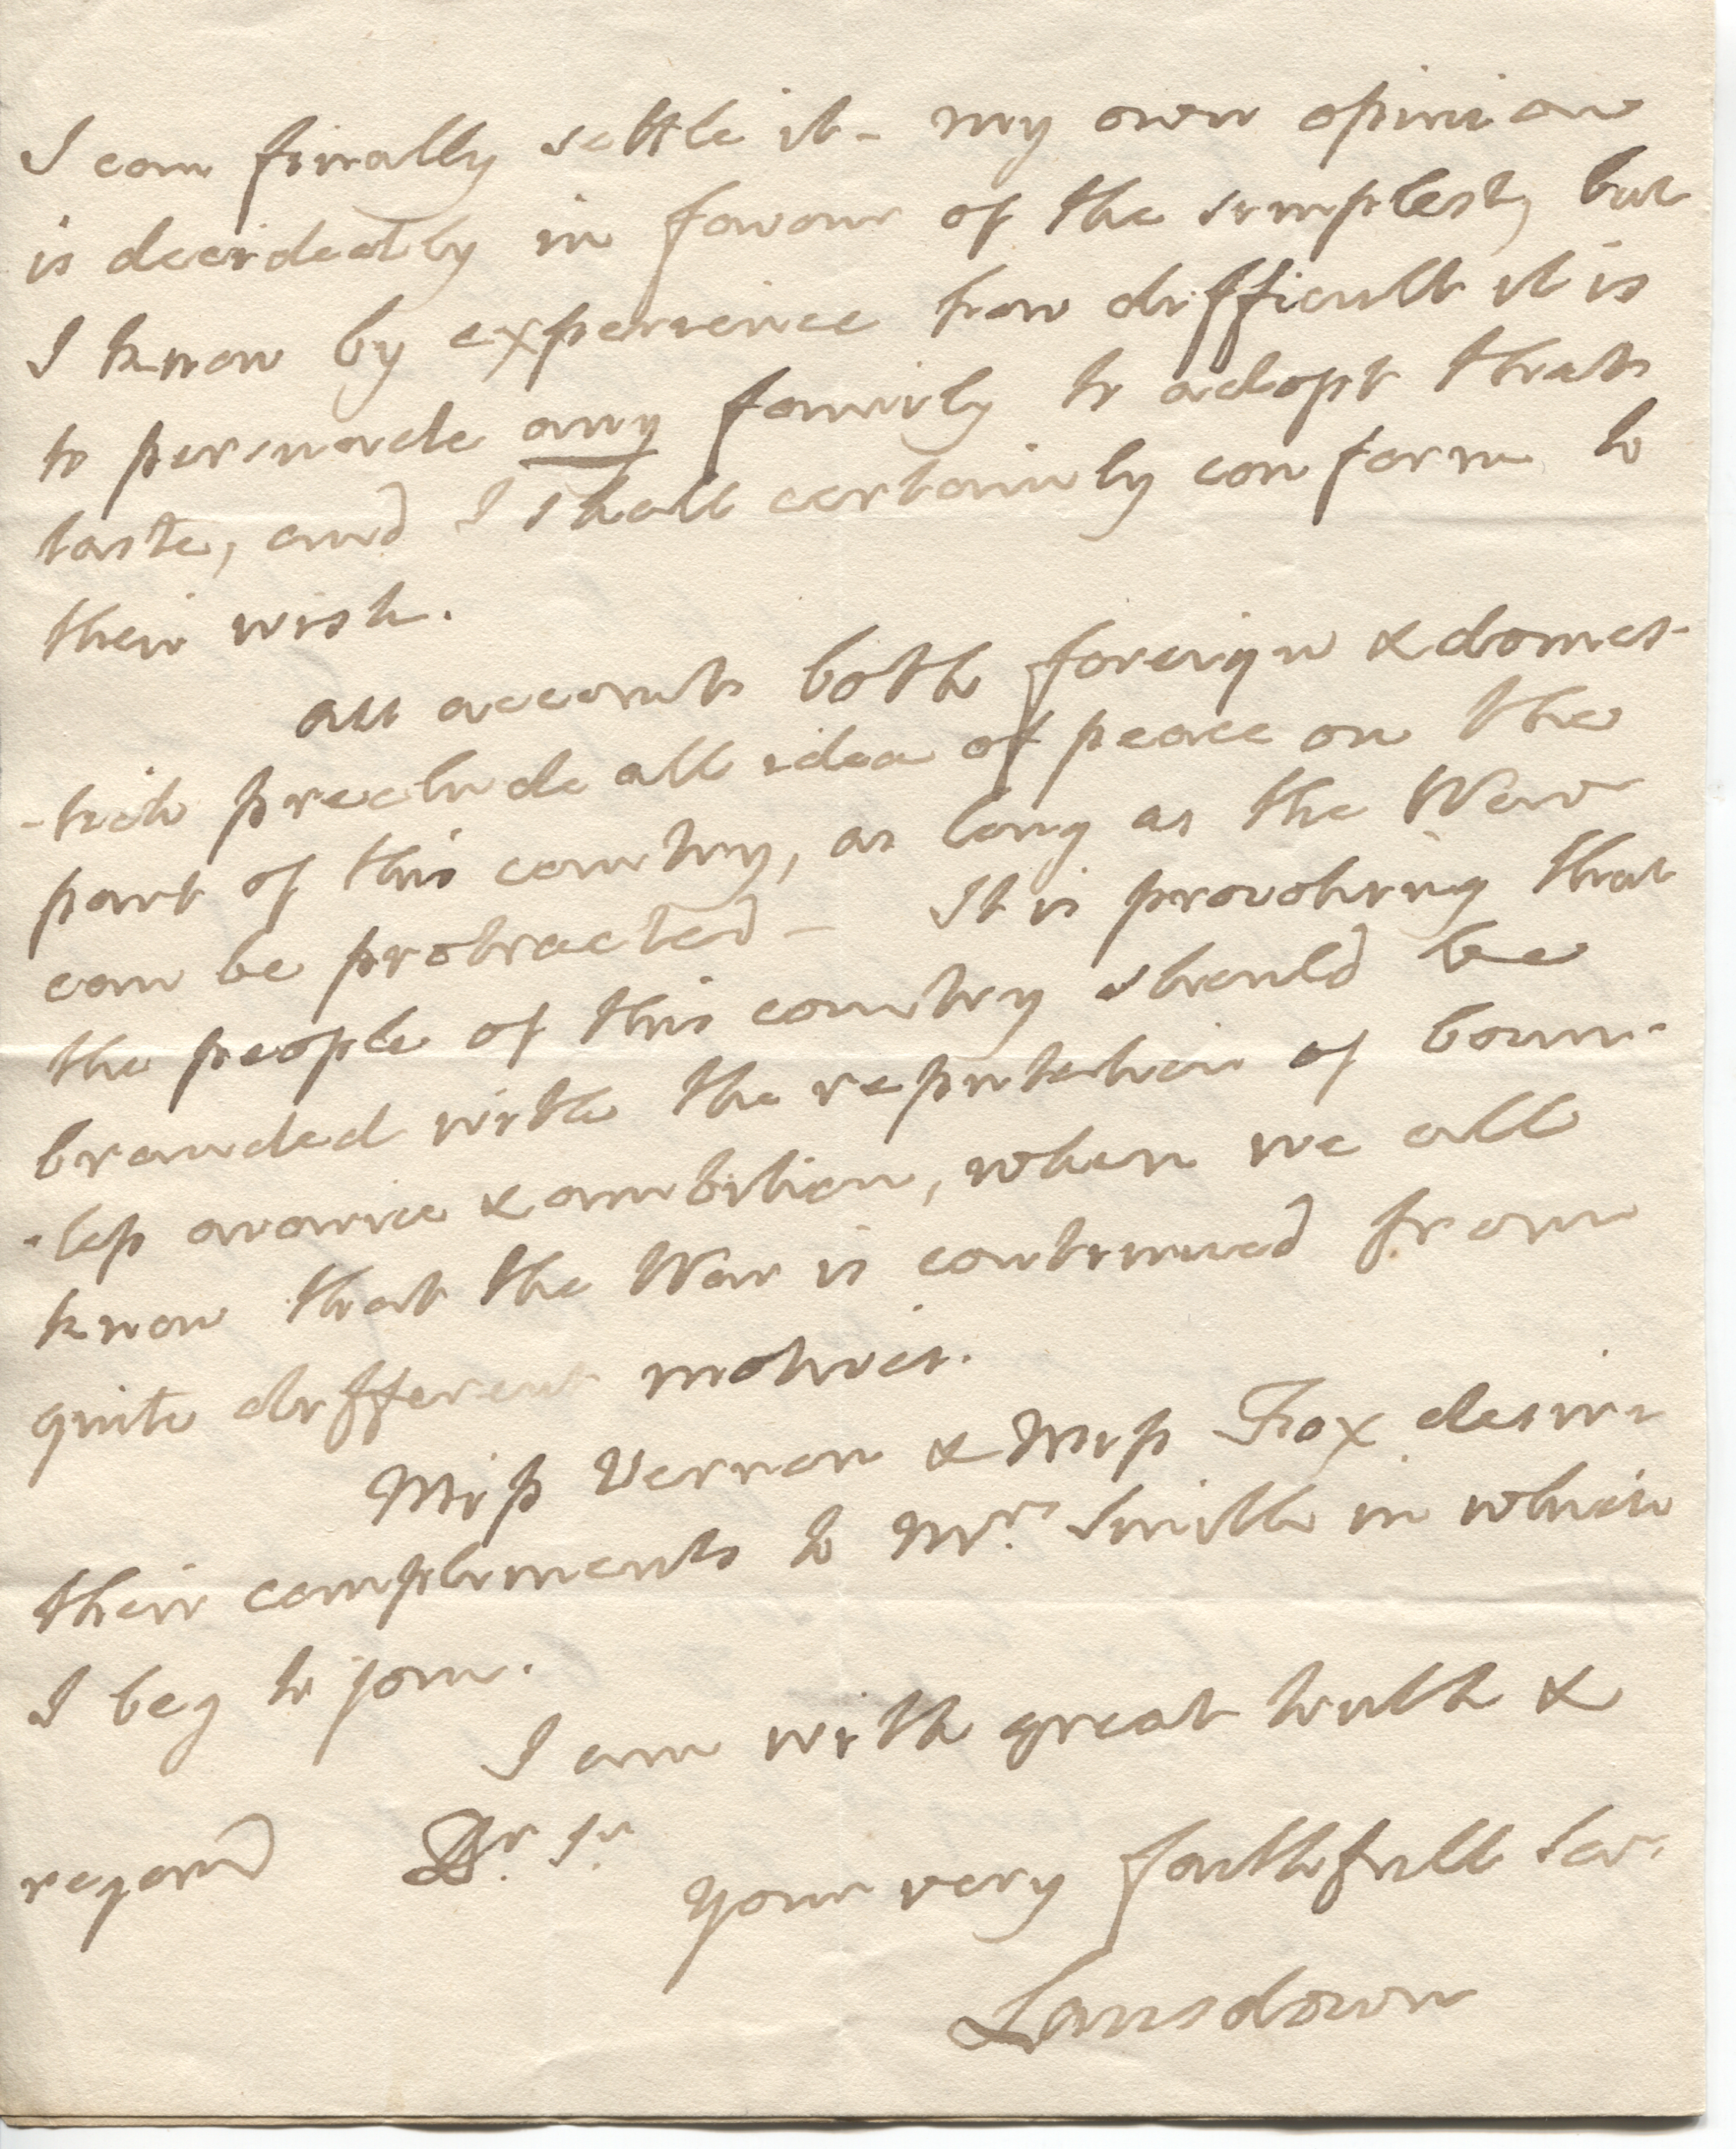 I can finally settle it - my own opinion
is decidedly in favour of the simplest, but
I know by experience how difficult it is
to persuade any family to adopt that
taste, and I shall certainly conform to
their wish.
All accounts both foreign & domes-
-tick preclude all idea of peace on the
part of this country, as long as the War
can be protracted - It is provoking that
the people of this country should be
branded with the reputation of boun-
-less avarice & ambition, when we all
know that the War is continued from
quite different motives.
Miss Vernon & Miss Fox desire
their compliments to Mrs. Smith in which
I beg to join.
I am with great truth &
regard Dr. Sr.
your very faithfull Ser.
Lansdown